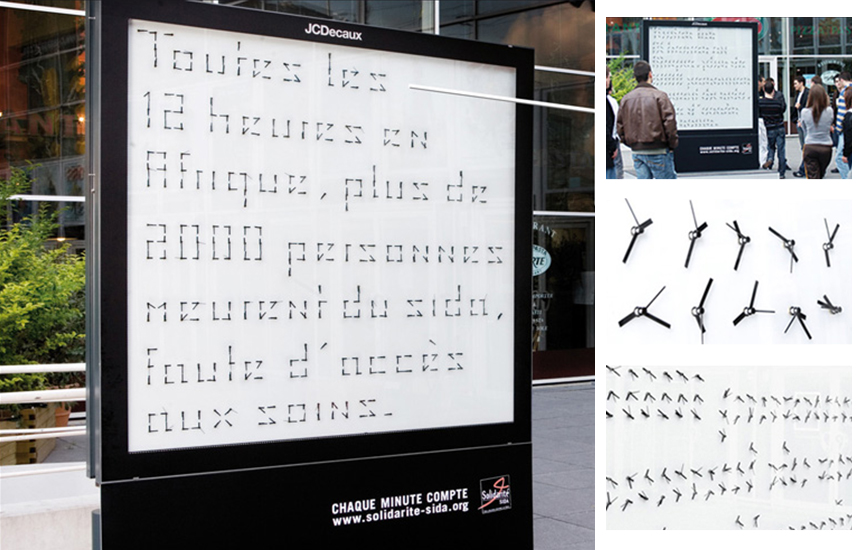 JCDecaux
Toutes les
12 heures en
Afrique, plus de
2000 personnes
meurent du sida,
faute d'accès
aux soins.
CHAQUE MINUTE COMPTE
www.solidarite-sida.org
Solidarité
SIDA
JCDecaux
CHAQUE MINUTE COMPTE
www.solidarite-sida.org